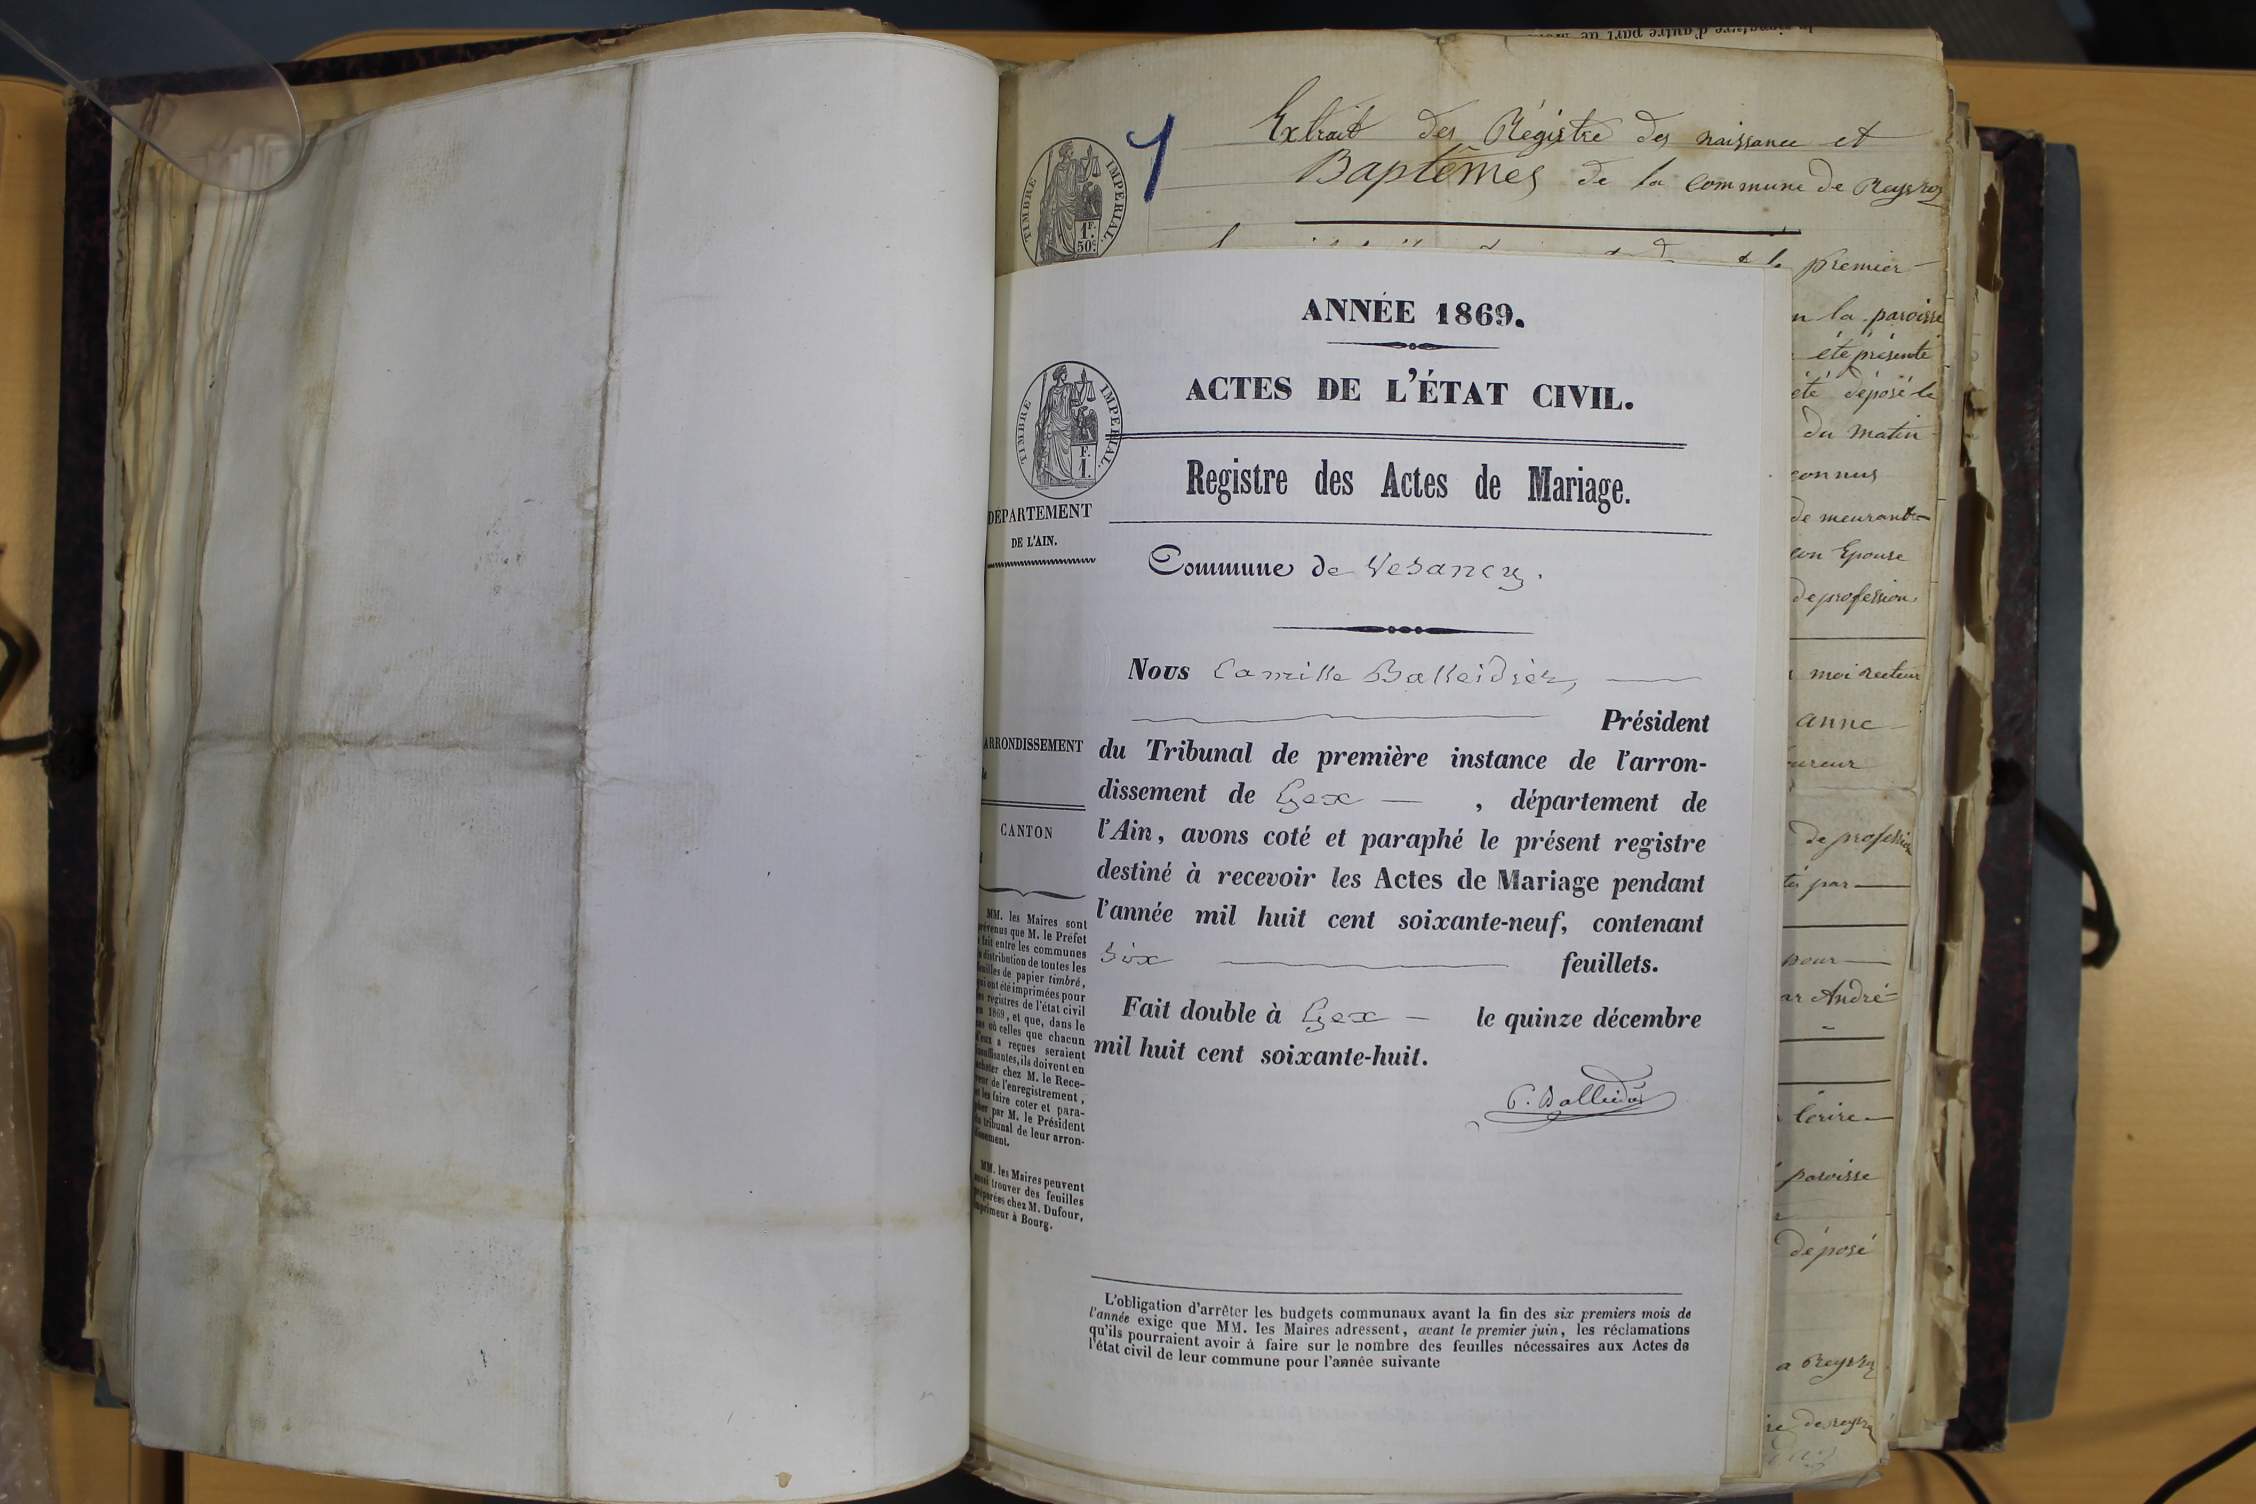 Extrait des Régistre des naissance et
Baptêmes de la commune de Reyssoz
TIMBRE IMPERIAL.
1F.
50c.
premier
la paroisse
été présenté
été déposé le
du matin
connus
demeurant
son Epouse
de profession
moi recteur
anne
de profession
par
pour
par André
Ecrire
paroisse
déposé
a Reyssoz
ANNÉE 1869.
ACTES DE L'ÉTAT CIVIL.
TIMBRE IMPERIAL.
F.
1.
Registre des Actes de Mariage.
DÉPARTEMENT
DE L'AIN.
Commune de Vesancy.
Nous Camille Balleidier,
Président
ARRONDISSEMENT
du Tribunal de première instance de l'arron-
dissement de Gex , département de
CANTON
l'Ain, avons coté et paraphé le présent registre
destiné à recevoir les Actes de Mariage pendant
l'année mil huit cent soixante-neuf, contenant
six feuillets.
Fait double à Gex le quinze décembre
mil huit cent soixante-huit.
C. Balleidier
MM. les Maires sont
prévenus que M. le Préfet
a fait entre les communes
la distribution de toutes les
feuilles de papier timbré,
qui ont été imprimées pour
les registres de l'état civil
en 1869, et que, dans le
cas où celles que chacun
d'eux a reçues seraient
insuffisantes, ils doivent en
acheter chez M. le Rece-
veur de l'enregistrement,
et les faire coter et para-
pher par M. le Président
du tribunal de leur arron-
dissement.
MM. les Maires peuvent
aussi trouver des feuilles
préparées chez M. Dufour,
imprimeur à Bourg.
L'obligation d'arrêter les budgets communaux avant la fin des six premiers mois de
l'année exige que MM. les Maires adressent, avant le premier juin, les réclamations
qu'ils pourraient avoir à faire sur le nombre des feuilles nécessaires aux Actes de
l'état civil de leur commune pour l'année suivante